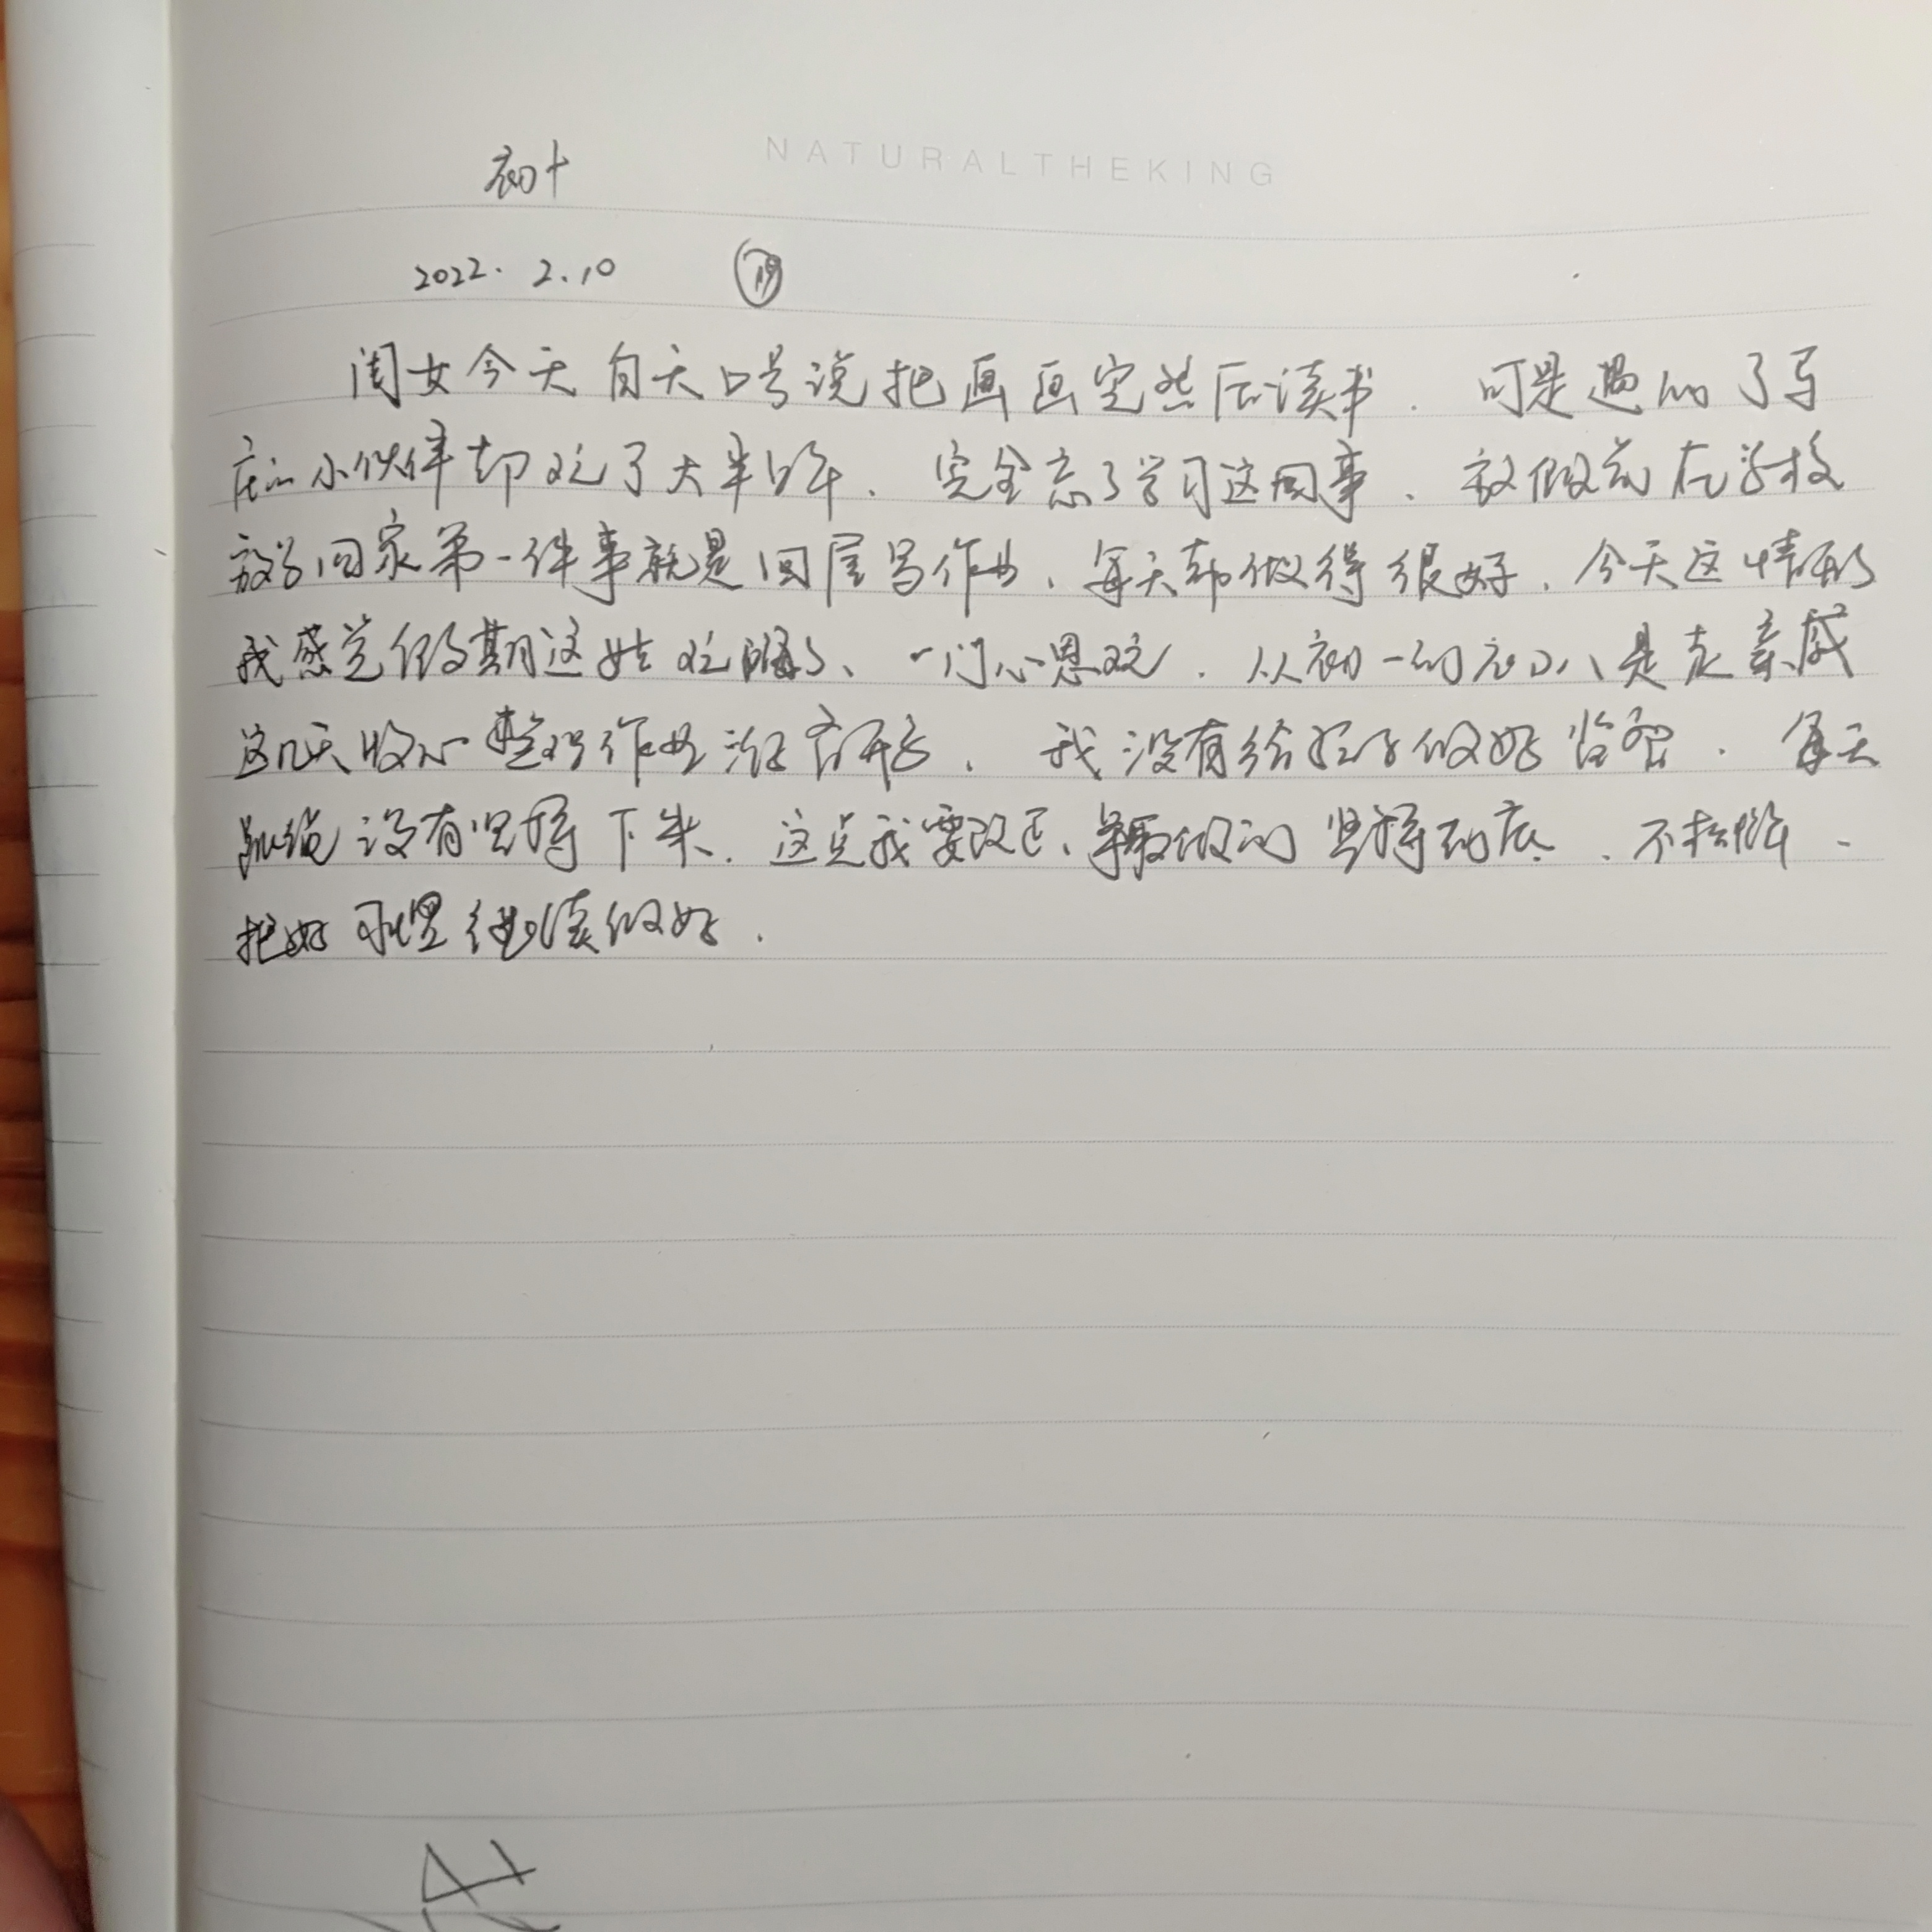 NATURALTHEKING
初十
2022. 2.10 ⑲
闺女今天白天口号说把画画完然后读书. 可是遇的了
小伙伴却玩了大半年、完全忘了学习这回事、放假前在学校
放学回家第一件事就是回屋写作业、每天都做得很好、今天这情形
我感觉假期这 玩 了、一门心思玩. 从初一的初八是走亲戚
这几天收心整理作业 . 我没有给孩子做好监督. 每天
跳绳没有坚持下来. 这点我要改正、争取做的坚持到底、不松懈、
把好习惯继续做好.